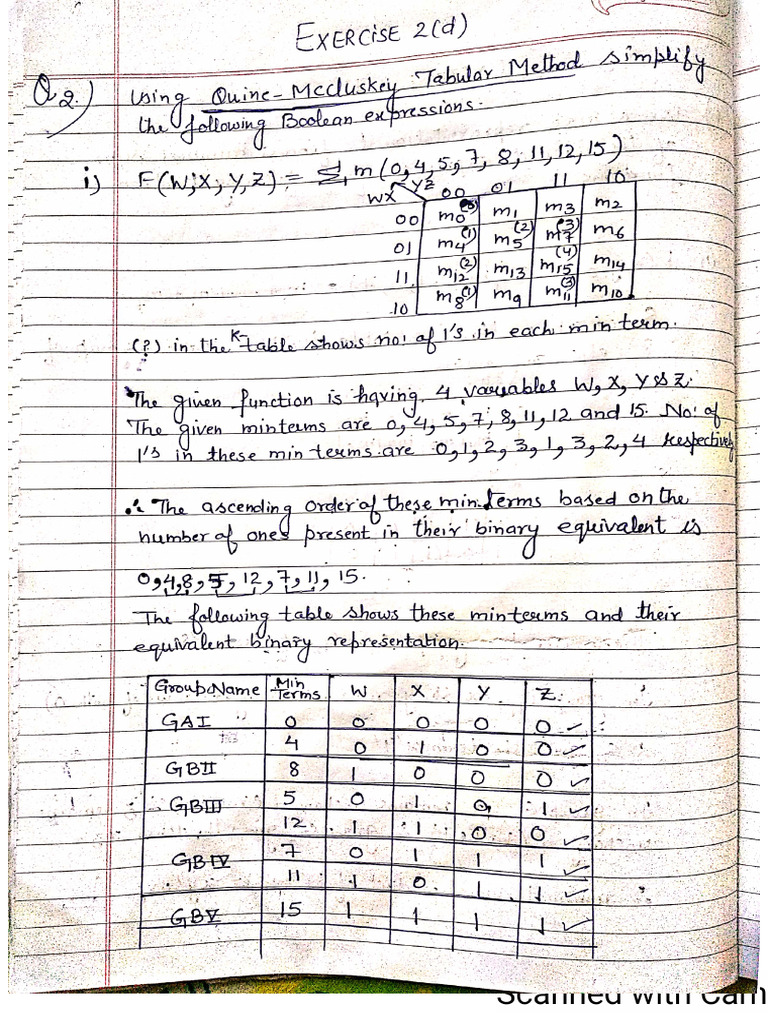 EXERCISE 2(d)
Q2.) Using Quine-Mccluskey Tabular Method simplify
the following Boolean expressions.
i) F(W,X,Y,Z) = Σ m(0,4,5,7,8,11,12,15)
WX YZ 00 01 11 10
00 m0(0) m1 m3 m2
01 m4(1) m5(2) m7(3) m6
11 m12(2) m13 m15(4) m14
10 m8(1) m9 m11(3) m10
(?) in the K-table shows no: of 1's in each min term.
The given function is having 4 variables W, X, Y & Z.
The given minterms are 0,4,5,7,8,11,12 and 15. No: of
1's in these min terms are 0,1,2,3,1,3,2,4 respectively
∴ The ascending order of these min terms based on the
number of ones present in their binary equivalent is
0,4,8,5,12,7,11,15.
The following table shows these minterms and their
equivalent binary representation.
Group Name Min Terms W X Y Z
GAI 0 0 0 0 0 ✓
4 0 1 0 0 ✓
GBII 8 1 0 0 0 ✓
GBIII 5 0 1 0 1 ✓
12 1 1 0 0 ✓
GBIV 7 0 1 1 1 ✓
11 1 0 1 1 ✓
GBV 15 1 1 1 1 ✓
Scanned with Cam